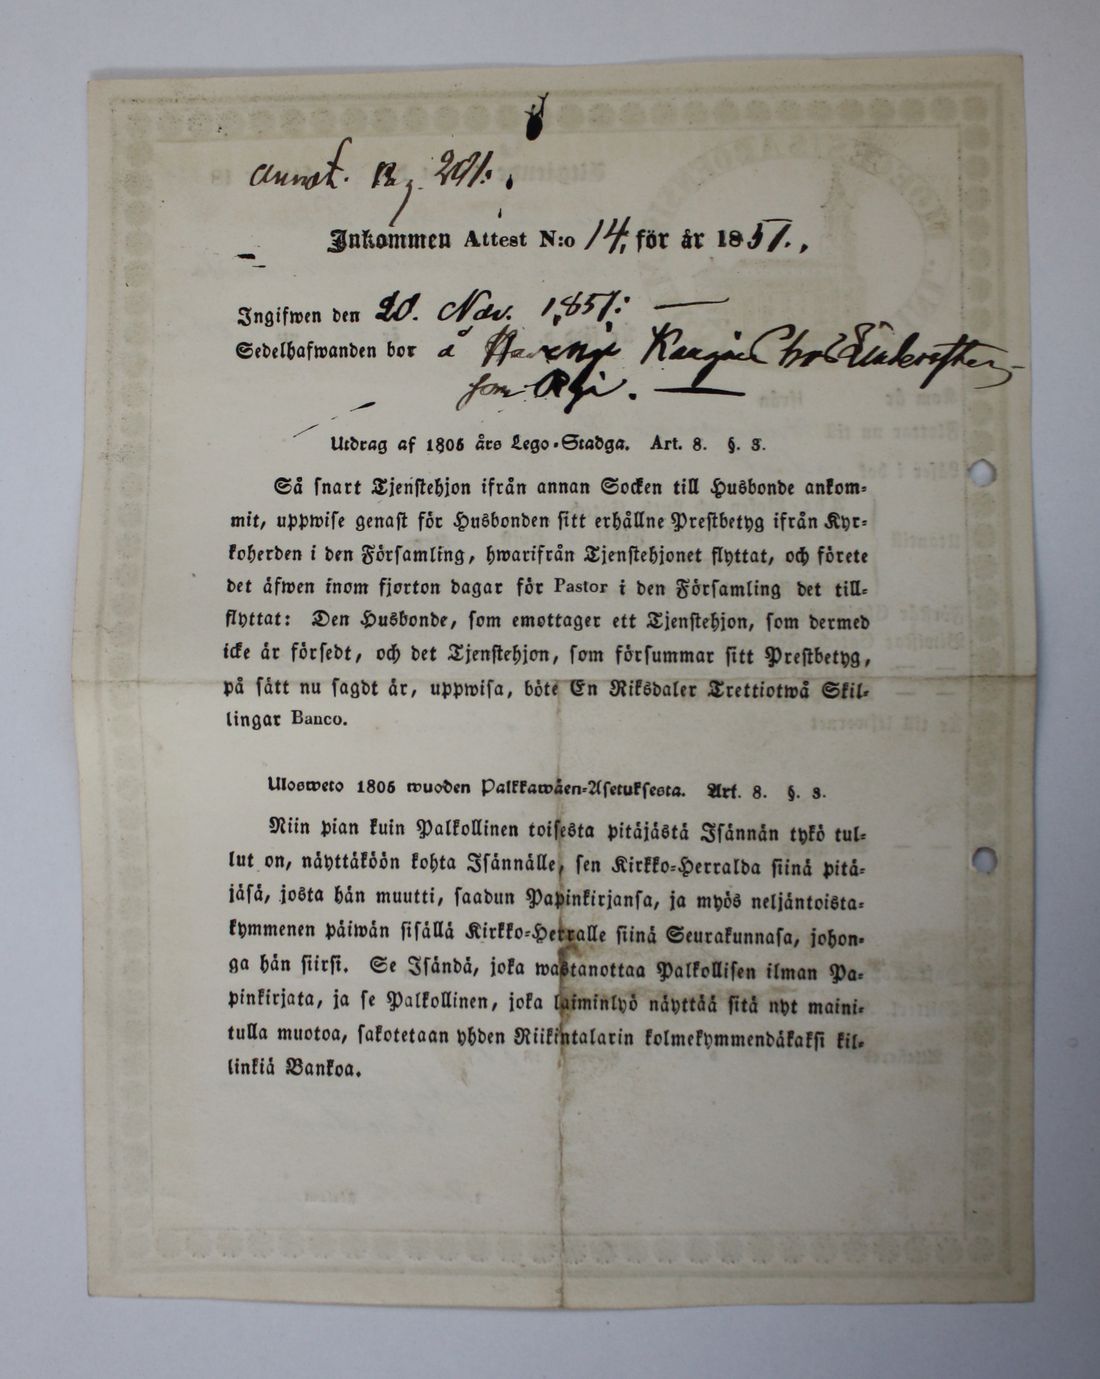 annot. Pag. 291.
Inkommen Attest N:o 14. för år 1851.
Ingifwen den 20. Nov. 1851.
Sedelhafwanden bor å
som Pigi.
Utdrag af 1805 års Lego-Stadga. Art. 8. §. 3.
Så snart Tjenstehjon ifrån annan Socken till Husbonde ankom-
mit, uppwise genast för Husbonden sitt erhållne Prestbetyg ifrån Kyr-
koherden i den Församling, hwarifrån Tjenstehjonet flyttat, och förete
det äfwen inom fjorton dagar för Pastor i den Församling det till-
flyttat: Den Husbonde, som emottager ett Tjenstehjon, som dermed
icke är försedt, och det Tjenstehjon, som försummar sitt Prestbetyg,
på sätt nu sagdt är, uppwisa, böte En Riksdaler Trettiotwå Skil-
lingar Banco.
Ulosweto 1805 wuoden Palkkawäen-Asetuksesta. Art. 8. §. 3.
Niin pian kuin Palkollinen toisesta pitäjästä Isännän tykö tul-
lut on, näyttäköön kohta Isännälle, sen Kirkko-Herralda siinä pitä-
jäsä, josta hän muutti, saadun Papinkirjansa, ja myös neljäntoista-
kymmenen päiwän sisällä Kirkko-Herralle siinä Seurakunnasa, johon-
ga hän siirsi. Se Isändä, joka wastanottaa Palkollisen ilman Pa-
pinkirjata, ja se Palkollinen, joka laiminlyö näyttää sitä nyt maini-
tulla muotoa, sakotetaan yhden Riikintalarin kolmekymmendäkaksi kil-
linkiä Bankoa.